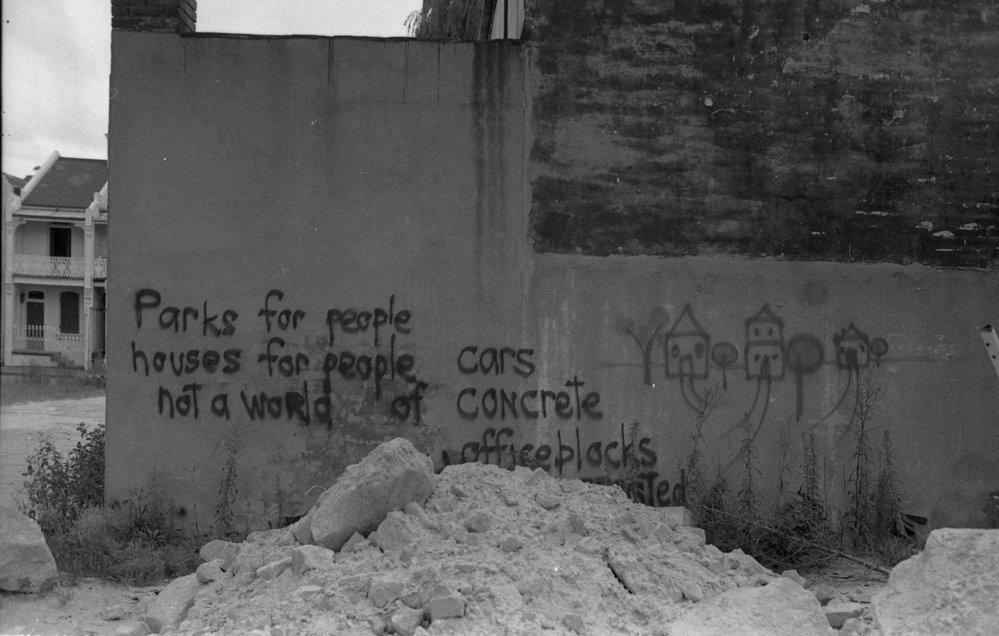 Parks for people
houses for people
not a world of
cars
concrete
office blocks